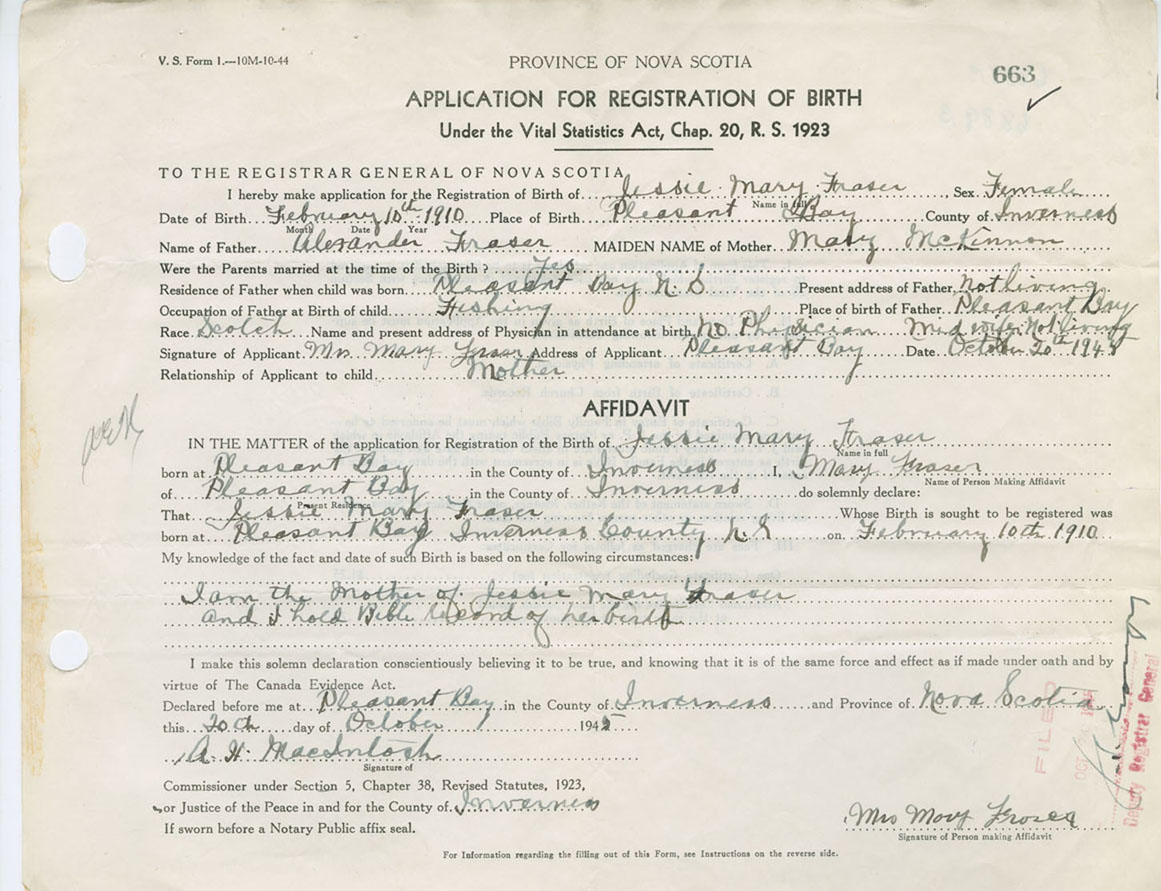 V. S. Form 1.—10M-10-44
PROVINCE OF NOVA SCOTIA
663
APPLICATION FOR REGISTRATION OF BIRTH
Under the Vital Statistics Act, Chap. 20, R. S. 1923
TO THE REGISTRAR GENERAL OF NOVA SCOTIA
I hereby make application for the Registration of Birth of Jessie Mary Fraser, Sex Female
Name in full
Date of Birth February 10th 1910 Place of Birth Pleasant Bay County of Inverness
Month Date Year
Name of Father Alexander Fraser MAIDEN NAME of Mother Mary McKinnon
Were the Parents married at the time of the Birth? Yes
Residence of Father when child was born Pleasant Bay N. S Present address of Father, Not living
Occupation of Father at Birth of child Fishing Place of birth of Father Pleasant Bay
Race Scotch Name and present address of Physician in attendance at birth, No Physician Midwife Not living
Signature of Applicant Mrs Mary Fraser Address of Applicant Pleasant Bay Date October 20th 1945
Relationship of Applicant to child Mother
AFFIDAVIT
IN THE MATTER of the application for Registration of the Birth of Jessie Mary Fraser
Name in full
born at Pleasant Bay in the County of Inverness I, Mary Fraser
Name of Person Making Affidavit
of Pleasant Bay in the County of Inverness do solemnly declare:
Present Residence
That Jessie Mary Fraser Whose Birth is sought to be registered was
born at Pleasant Bay Inverness County N. S on February 10th 1910
My knowledge of the fact and date of such Birth is based on the following circumstances:
I am the Mother of Jessie Mary Fraser
and I hold Bible record of her birth
I make this solemn declaration conscientiously believing it to be true, and knowing that it is of the same force and effect as if made under oath and by
virtue of The Canada Evidence Act.
Declared before me at Pleasant Bay in the County of Inverness and Province of Nova Scotia
this 20th day of October 1945
A. H. MacIntosh
Signature of
Commissioner under Section 5, Chapter 38, Revised Statutes, 1923,
or Justice of the Peace in and for the County of Inverness
If sworn before a Notary Public affix seal.
Mrs Mary Fraser
Signature of Person making Affidavit
For Information regarding the filling out of this Form, see Instructions on the reverse side.
FILED
OCT
Deputy Registrar General